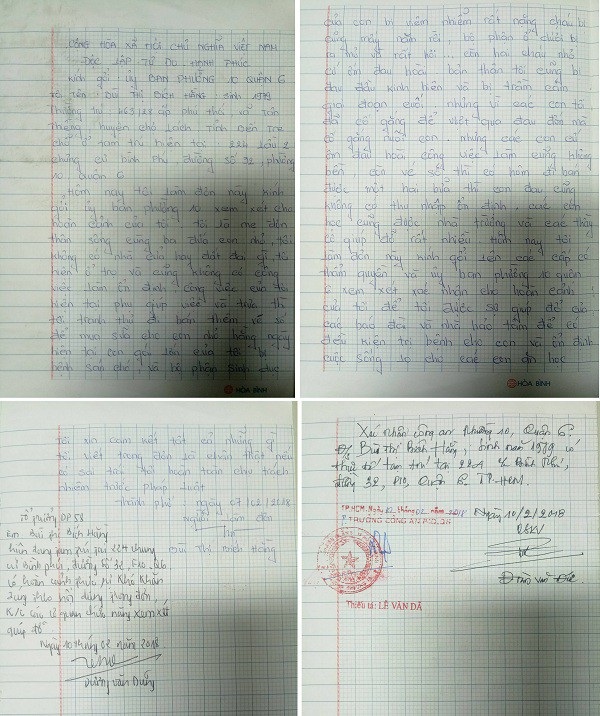 CỘNG HÒA XÃ HỘI CHỦ NGHĨA VIỆT NAM
ĐỘC LẬP TỰ DO HẠNH PHÚC
Kính gởi ủy BAN PHƯỜNG 10 QUẬN 6
TÔI TÊN: BÙI THỊ BÍCH HẰNG sinh 1979
Thường trú 463/18 ấp phú thới xã tân
thiềng huyện chợ Lách Tỉnh BẾN TRE
chỗ ở tạm trú hiện tại 224 lầu 2
chung cư bình phú, đường số 32, phường
10 quận 6
Hôm nay tôi làm đơn này kính
gởi ủy ban phường 10 xem xét cho
hoàn cảnh của tôi tôi là mẹ đơn
thân sống cùng ba đứa con nhỏ, tôi
không có nhà cửa hay đất đai gì, tôi
hiện ở trọ và cũng không có công
việc làm ổn định công việc của tôi
hiện tại phụ giúp việc và trưa thì
tôi tranh thủ đi bán thêm vé số
để mua sữa cho con nhỏ hằng ngày
hiện tại con gái lớn của tôi bị
bệnh sản phụ, và bộ phận sinh dục
HÒA BÌNH
của con bị viêm nhiễm rất nặng cháu bị
cũng mấy năm rồi, bộ phận ở dưới bị
ra mủ và rất hôi, còn hai cháu nhỏ
cứ ốm đau hoài bản thân tôi cũng bị
đau đầu kinh niên và bị trầm cảm
giai đoạn cuối, nhưng vì các con tôi
đã cố gắng để vượt qua đau đớn mà
cố gắng nuôi con, nhưng các con cứ
ốm đau hoài công việc làm cũng không
bền, còn vé số thì có hôm đi bán
được một hai bữa thì con đau cũng
không có thu nhập ổn định, các con
học cũng được nhà trường và các thầy
cô giúp đỡ rất nhiều hôm nay tôi
làm đơn này kính gởi lên các cấp có
thẩm quyền và ủy ban phường 10 quận
6 xem xét xác nhận cho hoàn cảnh
của tôi để tôi được sự giúp đỡ của
các báo đài và nhà hảo tâm để có
điều kiện trị bệnh cho con và ổn định
cuộc sống lo cho các con ăn học
HÒA BÌNH
Tôi xin cam kết tất cả những gì
tôi viết trong đơn là chân thật nếu
có sai trái tôi hoàn toàn chịu trách
nhiệm trước pháp luật
Thành phố, ngày 07/02/2018
người làm đơn
Bùi Thị Bích Hằng
Tổ trưởng DP 58
Bùi Thị Bích Hằng
hiện đang tạm trú tại 224 chung
cư Bình phú, đường số 32, F10, Q6
có hoàn cảnh khó khăn
đúng theo nội dung trong đơn,
K/C các cơ quan chức năng xem xét
giúp đỡ
Ngày 10 tháng 02 năm 2018
Dương Văn
Xác nhận công an Phường 10, Quận 6.
Bùi Thị Bích Hằng, sinh năm 1979 có
thực tế tạm trú tại 224 Bình Phú,
đường 32, P10, Quận 6. TP. HCM.
TP.HCM, Ngày 10 tháng 02 năm 2018
TRƯỞNG CÔNG AN P.10, Q6
Ngày 10/2/2018
Thiếu tá: LÊ VĂN DÃ